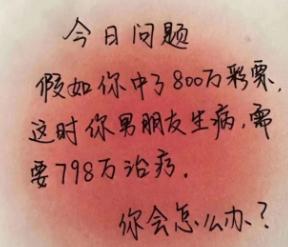 今日问题
假如你中了800万彩票,
这时你男朋友生病,需
要798万治疗.
你会怎么办?